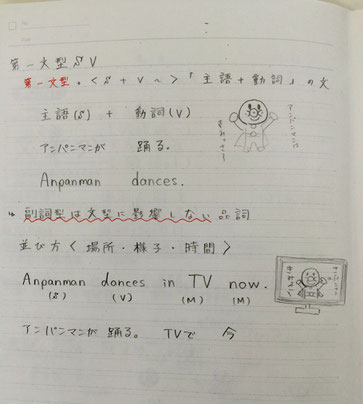 第一文型 S V
第一文型。<S+V~>「主語+動詞」の文
主語(S) + 動詞(V)
アンパンマンが 踊る。
Anpanman dances.
副詞型は文型に影響しない品詞
並び方<場所・様子・時間>
Anpanman dances in TV now.
(S) (V) (M) (M)
アンパンマンが 踊る。 TVで 今